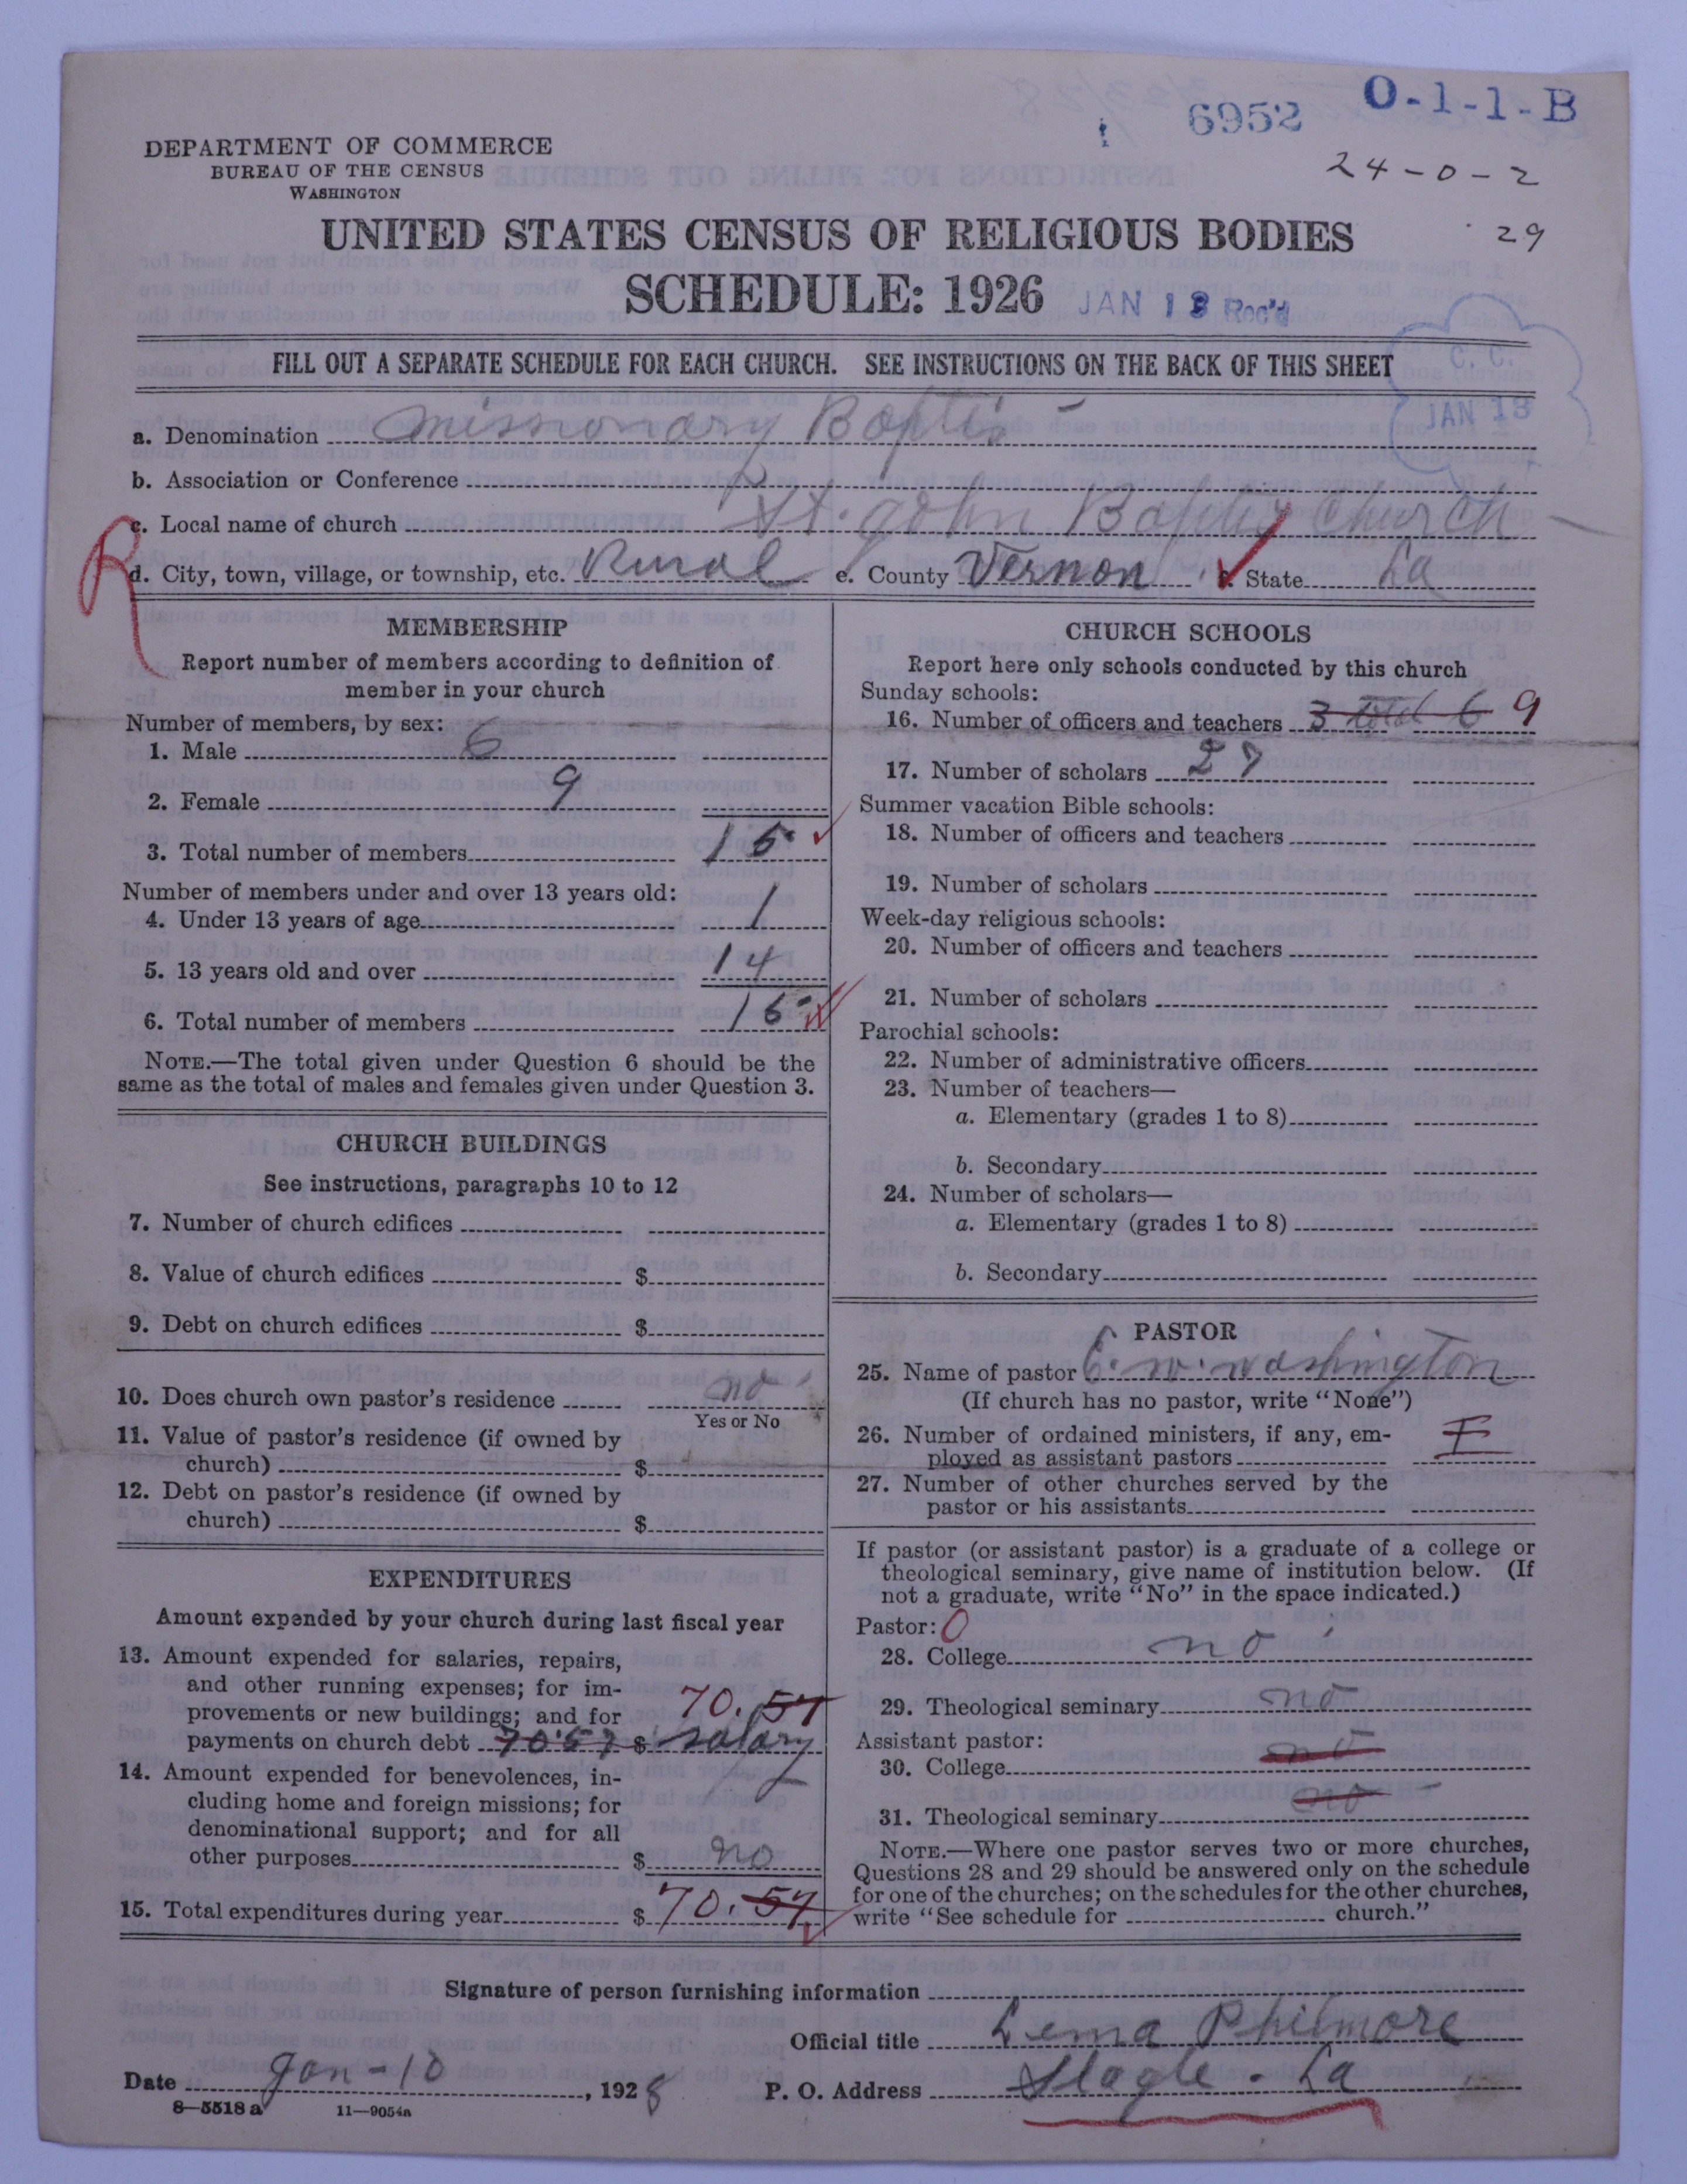 6952 O-1-1-B
24-0-2
29
DEPARTMENT OF COMMERCE
BUREAU OF THE CENSUS
WASHINGTON
UNITED STATES CENSUS OF RELIGIOUS BODIES
SCHEDULE: 1926 JAN 13 Rec'd
FILL OUT A SEPARATE SCHEDULE FOR EACH CHURCH. SEE INSTRUCTIONS ON THE BACK OF THIS SHEET
C. C.
JAN 13
a. Denomination missionary Baptis
b. Association or Conference
c. Local name of church St. John Baptis Church
R
d. City, town, village, or township, etc. Rural e. County Vernon f. State La
MEMBERSHIP
Report number of members according to definition of
member in your church
Number of members, by sex:
1. Male 6
2. Female 9
3. Total number of members 15
Number of members under and over 13 years old:
4. Under 13 years of age 1
5. 13 years old and over 14
6. Total number of members 15
NOTE.—The total given under Question 6 should be the
same as the total of males and females given under Question 3.
CHURCH BUILDINGS
See instructions, paragraphs 10 to 12
7. Number of church edifices
8. Value of church edifices $
9. Debt on church edifices $
10. Does church own pastor's residence no
Yes or No
11. Value of pastor's residence (if owned by
church) $
12. Debt on pastor's residence (if owned by
church) $
EXPENDITURES
Amount expended by your church during last fiscal year
13. Amount expended for salaries, repairs,
and other running expenses; for im-
provements or new buildings; and for 70.57
payments on church debt 70.57 $ salary
14. Amount expended for benevolences, in-
cluding home and foreign missions; for
denominational support; and for all
other purposes $ no
15. Total expenditures during year $ 70.57
CHURCH SCHOOLS
Report here only schools conducted by this church
Sunday schools:
16. Number of officers and teachers 3 total 6 9
17. Number of scholars 27
Summer vacation Bible schools:
18. Number of officers and teachers
19. Number of scholars
Week-day religious schools:
20. Number of officers and teachers
21. Number of scholars
Parochial schools:
22. Number of administrative officers
23. Number of teachers—
a. Elementary (grades 1 to 8)
b. Secondary
24. Number of scholars—
a. Elementary (grades 1 to 8)
b. Secondary
PASTOR
25. Name of pastor E. W. Washington
(If church has no pastor, write "None")
26. Number of ordained ministers, if any, em-
ployed as assistant pastors
27. Number of other churches served by the
pastor or his assistants
If pastor (or assistant pastor) is a graduate of a college or
theological seminary, give name of institution below. (If
not a graduate, write "No" in the space indicated.)
Pastor: 0
28. College no
29. Theological seminary no
Assistant pastor:
30. College no
31. Theological seminary no
NOTE.—Where one pastor serves two or more churches,
Questions 28 and 29 should be answered only on the schedule
for one of the churches; on the schedules for the other churches,
write "See schedule for church."
Signature of person furnishing information
Official title Lema Philmore
Date Jan-10, 1928 P. O. Address Slagle. La
8—5518 a 11—9054a